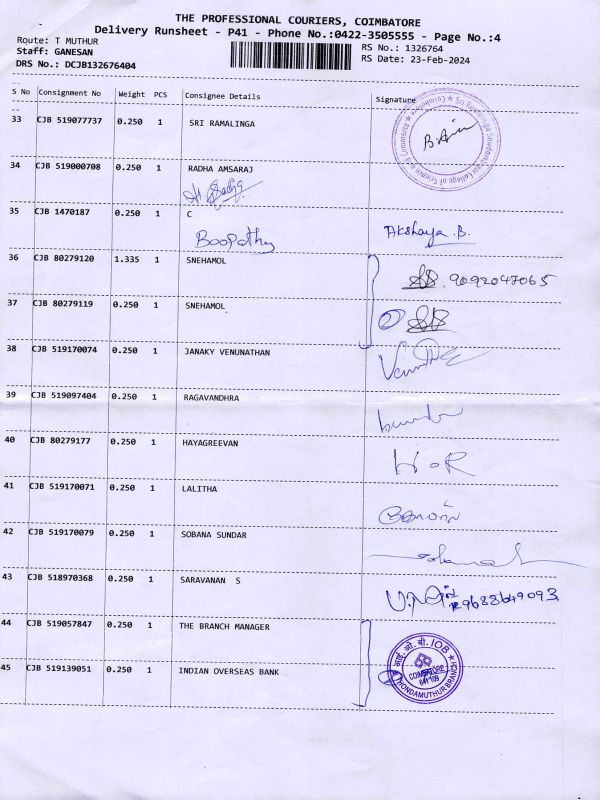 THE PROFESSIONAL COURIERS, COIMBATORE
Delivery Runsheet - P41 - Phone No.:0422-3505555 - Page No.:4
Route: T MUTHUR
Staff: GANESAN
DRS No.: DCJB132676404
RS No.: 1326764
RS Date: 23-Feb-2024
S No Consignment No Weight PCS Consignee Details Signature
33 CJB 519077737 0.250 1 SRI RAMALINGA
34 CJB 519000708 0.250 1 RADHA AMSARAJ
35 CJB 1470187 0.250 1 C
Boopathy Akshaya.B.
36 CJB 80279120 1.335 1 SNEHAMOL
9092047065
37 CJB 80279119 0.250 1 SNEHAMOL
38 CJB 519170074 0.250 1 JANAKY VENUNATHAN
39 CJB 519097404 0.250 1 RAGAVANDHRA
40 CJB 80279177 0.250 1 HAYAGREEVAN
41 CJB 519170071 0.250 1 LALITHA
42 CJB 519170079 0.250 1 SOBANA SUNDAR
43 CJB 518970368 0.250 1 SARAVANAN S
9688649093
44 CJB 519057847 0.250 1 THE BRANCH MANAGER
आई. ओ. बी. IOB
COIMBATORE
641109
THONDAMUTHUR BRANCH
45 CJB 519139051 0.250 1 INDIAN OVERSEAS BANK